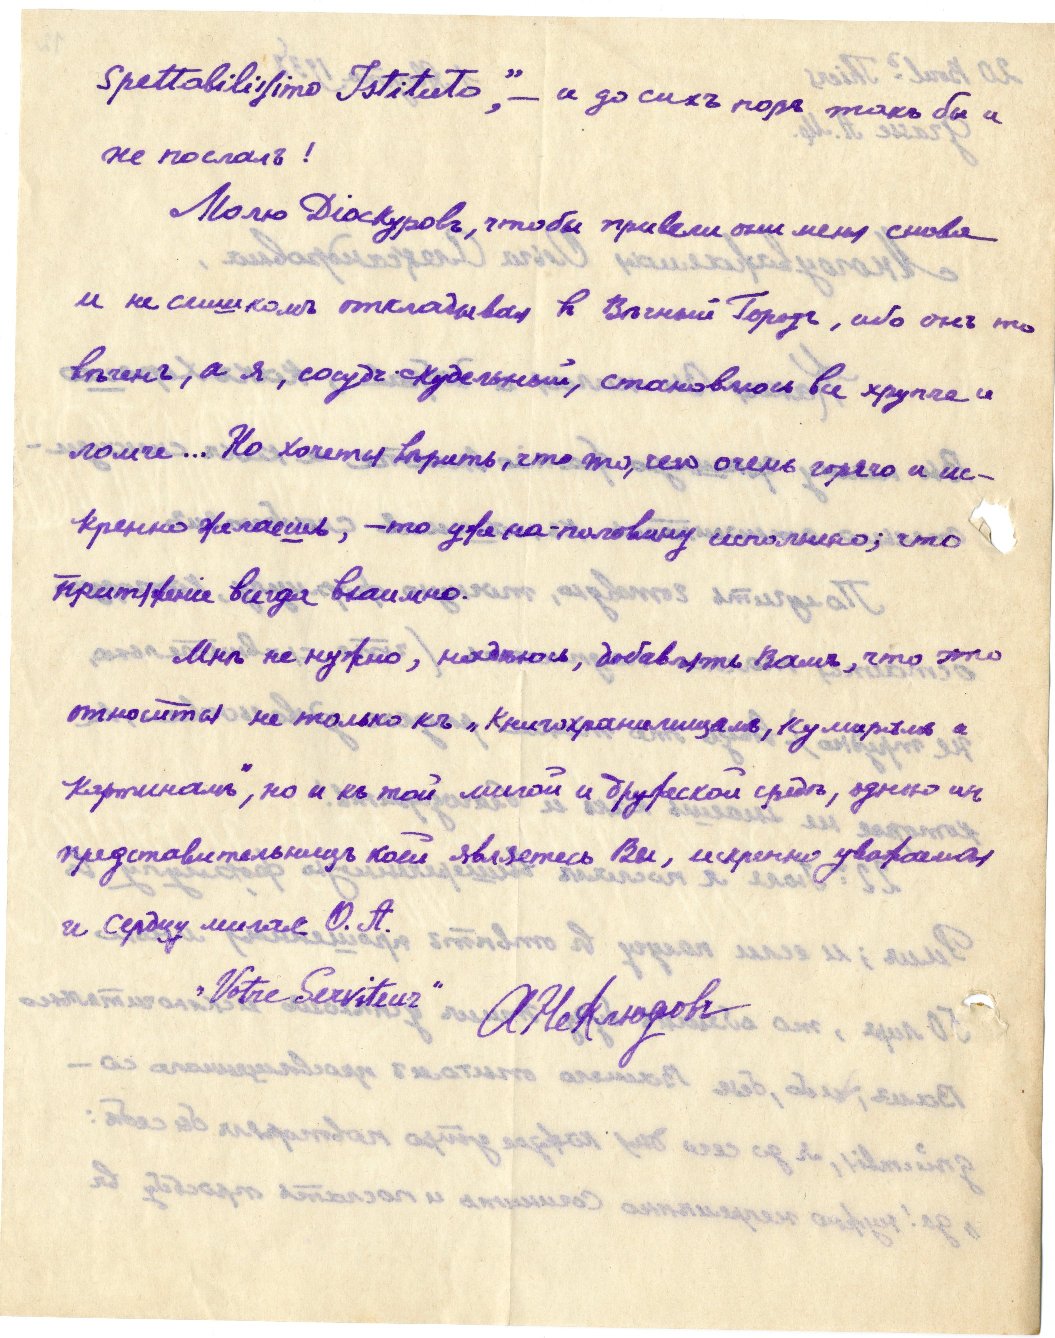 Spettabilissimo Istituto," — и до сихъ поръ такъ бы и
не послалъ!
Молю Діоскуровъ, чтобы привели они меня снова
и не слишкомъ откладывая въ Вѣчный Городъ, ибо онъ то
вѣченъ, а я, сосудъ скудельный, становлюсь все хрупче и
ломче... Но хочется вѣрить, что то, чего очень горячо и ис-
кренно желаешь, — то уже на-половину исполнено; что
притяженіе всегда взаимно.
Мнѣ не нужно, надѣюсь, добавлять Вамъ, что это
относится не только къ „книгохранилищамъ, кумирамъ и
картинамъ", но и къ той милой и дружеской средѣ, одною изъ
представительницъ коей являетесь Вы, искренно уважаемая
и сердцу милая О. А.
„Votre Serviteur"
АНеклюдовъ